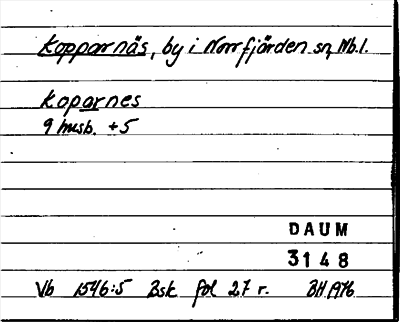 Kopparnäs, by i Norrfjärden sn, Nb.l.
Koparnes
9 husb. +5
DAUM
3148
Vb 1546:5 Bsk fol 27 r. BH 1976